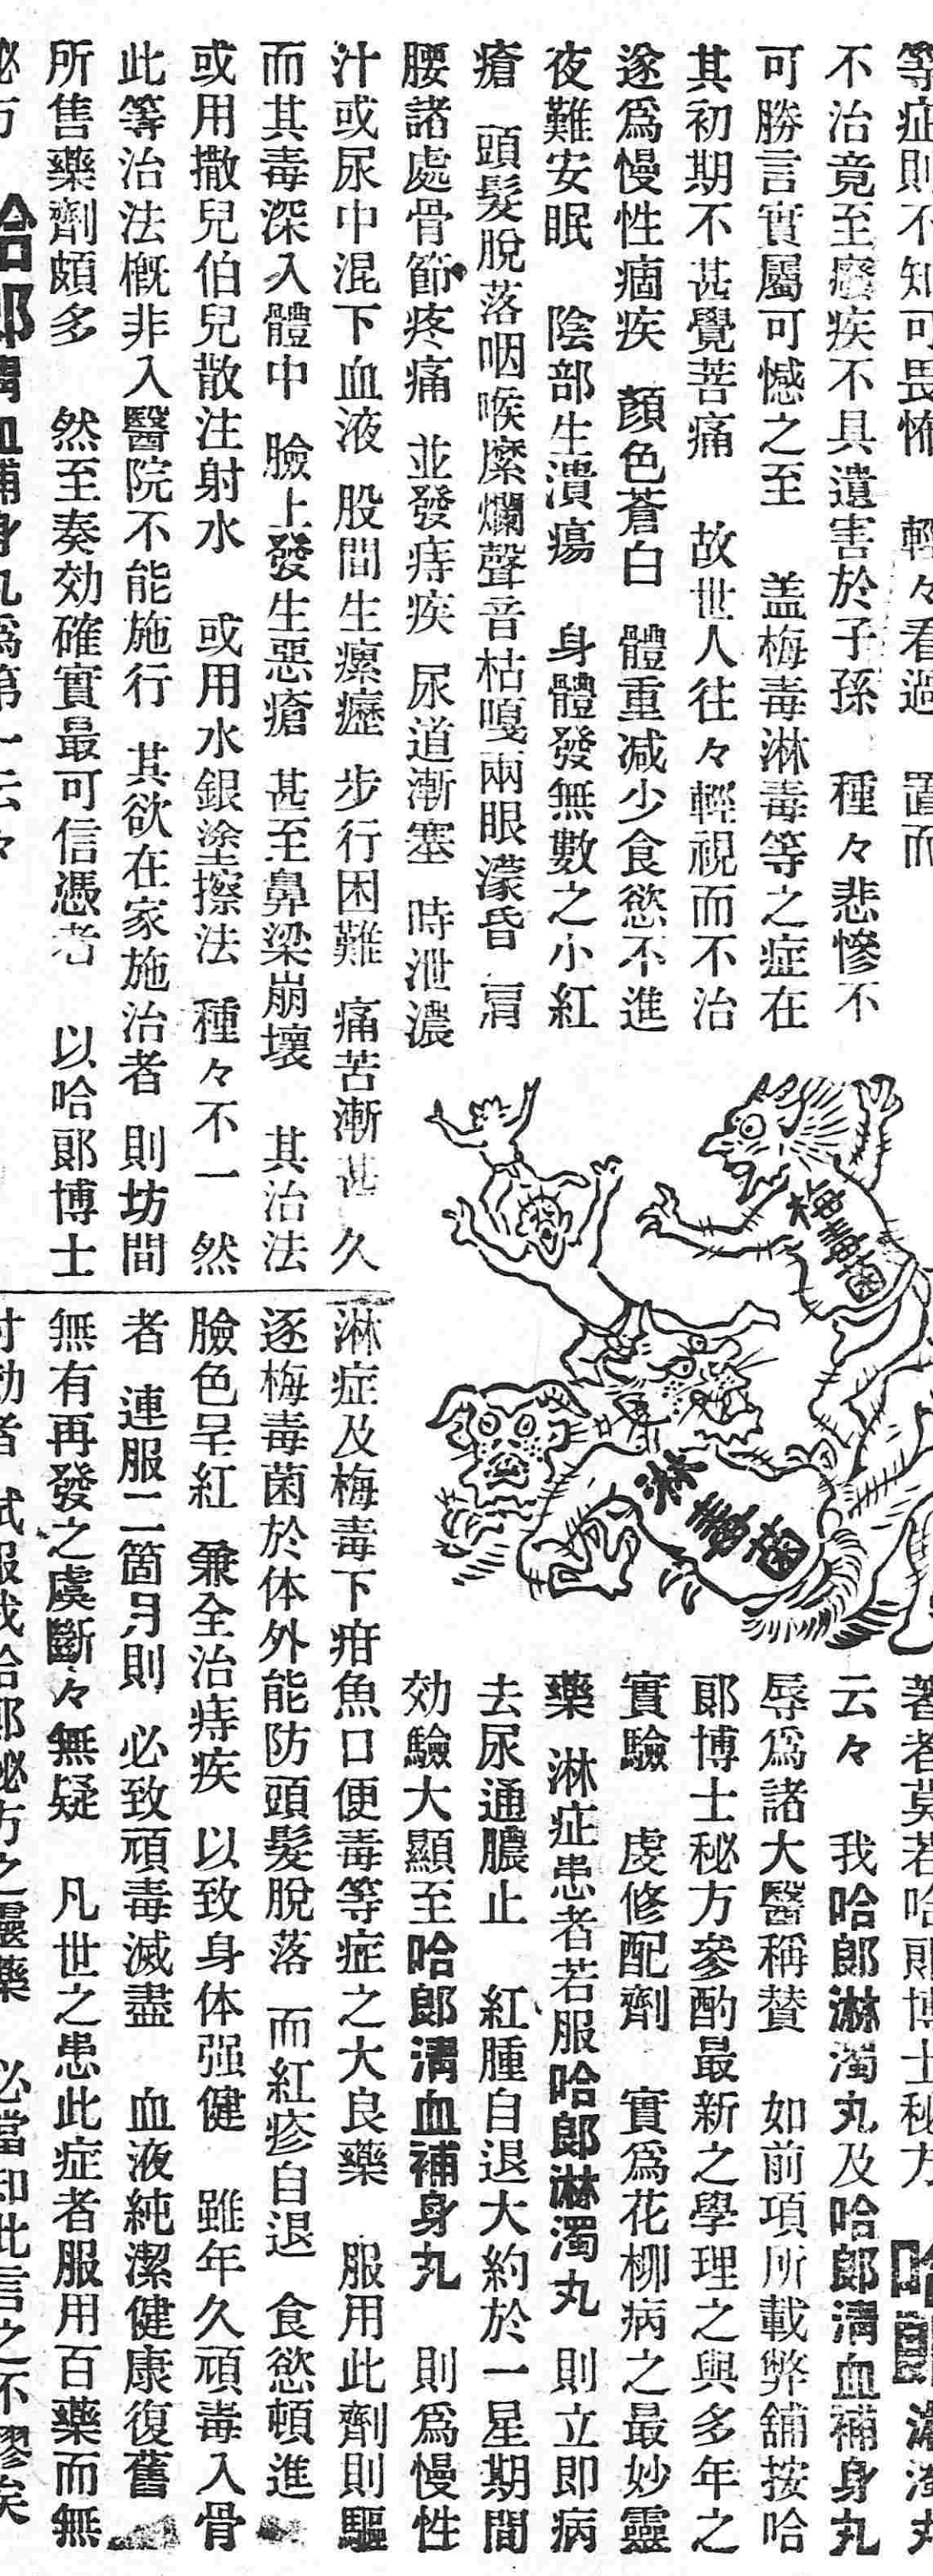 等症則不知可畏怖 輕々看過 置而
不治竟至癈疾不具遺害於子孫 種々悲慘不
可勝言實屬可憾之至 盖梅毒淋毒等之症在
其初期不甚覺苦痛 故世人往々輕視而不治
遂爲慢性痼疾 顏色蒼白 體重減少食慾不進
夜難安眠 陰部生潰瘍 身體發無數之小紅
瘡 頭髮脫落咽喉縻爛聲音枯嗄兩眼濛昏 肩
腰諸處骨節疼痛 並發痔疾 尿道漸塞 時泄濃
汁或尿中混下血液 股間生瘰癧 步行困難 痛苦漸甚 久
而其毒深入體中 臉上發生惡瘡 甚至鼻梁崩壞 其治法
或用撒兒伯兒散注射水 或用水銀塗擦法 種々不一 然
此等治法槪非入醫院不能施行 其欲在家施治者 則坊間
所售藥劑頗多 然至奏効確實最可信憑者 以哈郞博士
秘方 哈郞淸血補身丸爲第一云々
梅毒菌
淋毒菌
著者莫若哈郞博士秘方 哈郞淋濁丸
云々 我哈郞淋濁丸及哈郞淸血補身丸
辱爲諸大醫稱贊 如前項所載弊舖按哈
郞博士秘方參酌最新之學理之與多年之
實驗 虔修配劑 實爲花柳病之最妙靈
藥 淋症患者若服哈郞淋濁丸 則立即病
去尿通膿止 紅腫自退大約於一星期間
効驗大顯至哈郞淸血補身丸 則爲慢性
淋症及梅毒下疳魚口便毒等症之大良藥 服用此劑則驅
逐梅毒菌於体外能防頭髮脫落 而紅疹自退 食慾頓進
臉色呈紅 兼全治痔疾 以致身体强健 雖年久頑毒入骨
者 連服二箇月則 必致頑毒滅盡 血液純潔健康復舊
無有再發之虞斷々無疑 凡世之患此症者服用百藥而無
寸効者 試服我哈郞秘方之靈藥 必當知此言之不謬矣